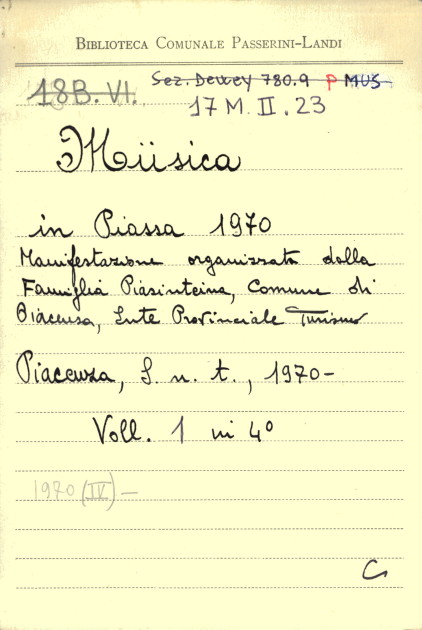 BIBLIOTECA COMUNALE PASSERINI-LANDI
18B. VI. Sez. Dewey 780.9 P MUS
17 M. II. 23
Müsica
in Piassa 1970
Manifestazione organizzata dalla
Famiglia Piasinteina, Comune di
Piacenza, Ente Provinciale Turismo
Piacenza, S. n. t., 1970-
Voll. 1 in 4°
1970 (IV) -
C